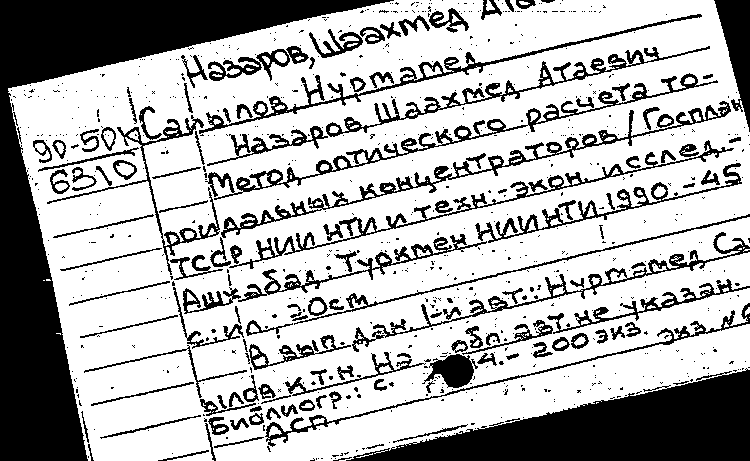 Назаров, Шаахмед
90-50к
6310
Сапылов, Нурмамед
Назаров, Шаахмед Атаевич
Метод оптического расчета то-
роидальных концентраторов / Госплан
ТССР, НИИ НТИ и техн.-экон. исслед.-
Ашхабад: Туркмен НИИНТИ, 1990.-45
с.: ил.; 20см.
В вып. дан. 1-й авт.: Нурмамед Сап
ылов к.т.н. На обл. авт. не указан.
Библиогр.: с. 4.- 200 экз.
экз. №
ДСП.